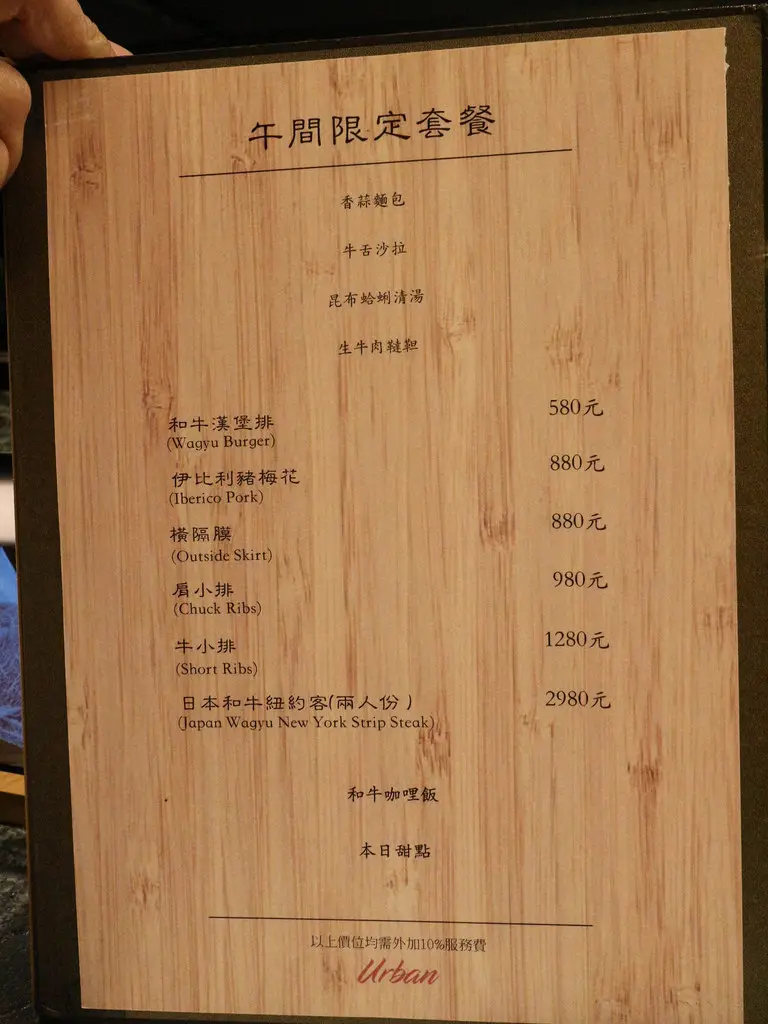 午間限定套餐
香蒜麵包
牛舌沙拉
昆布蛤蜊清湯
生牛肉韃靼
和牛漢堡排 580元
(Wagyu Burger)
伊比利豬梅花 880元
(Iberico Pork)
橫隔膜 880元
(Outside Skirt)
肩小排 980元
(Chuck Ribs)
牛小排 1280元
(Short Ribs)
日本和牛紐約客(兩人份) 2980元
(Japan Wagyu New York Strip Steak)
和牛咖哩飯
本日甜點
以上價位均需外加10%服務費
Urban